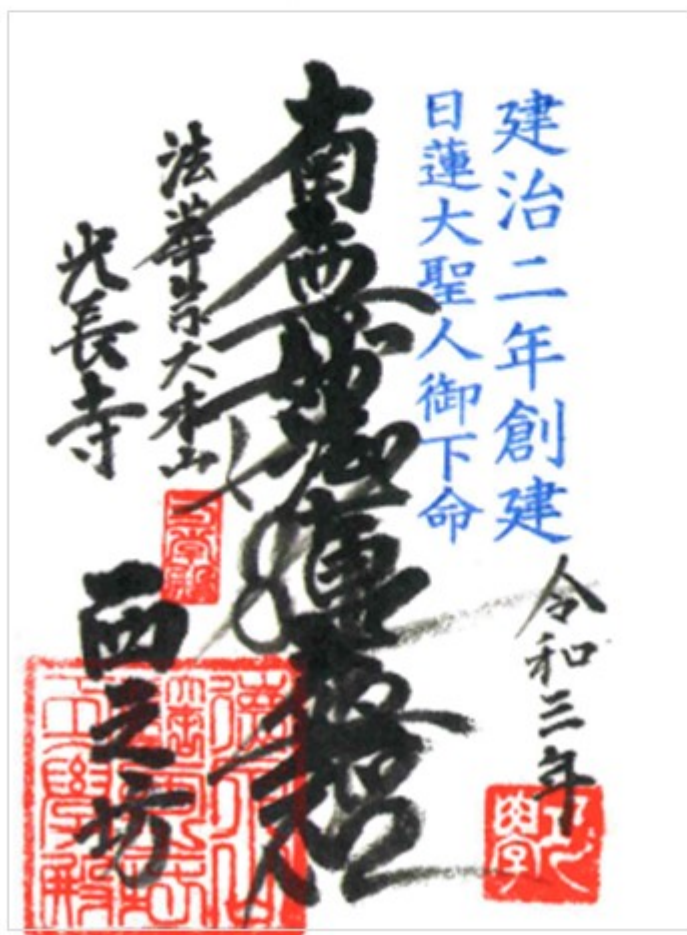 建治二年創建
日蓮大聖人御下命
令和三年
南無妙法蓮華經
法華宗大本山
光長寺
西之坊